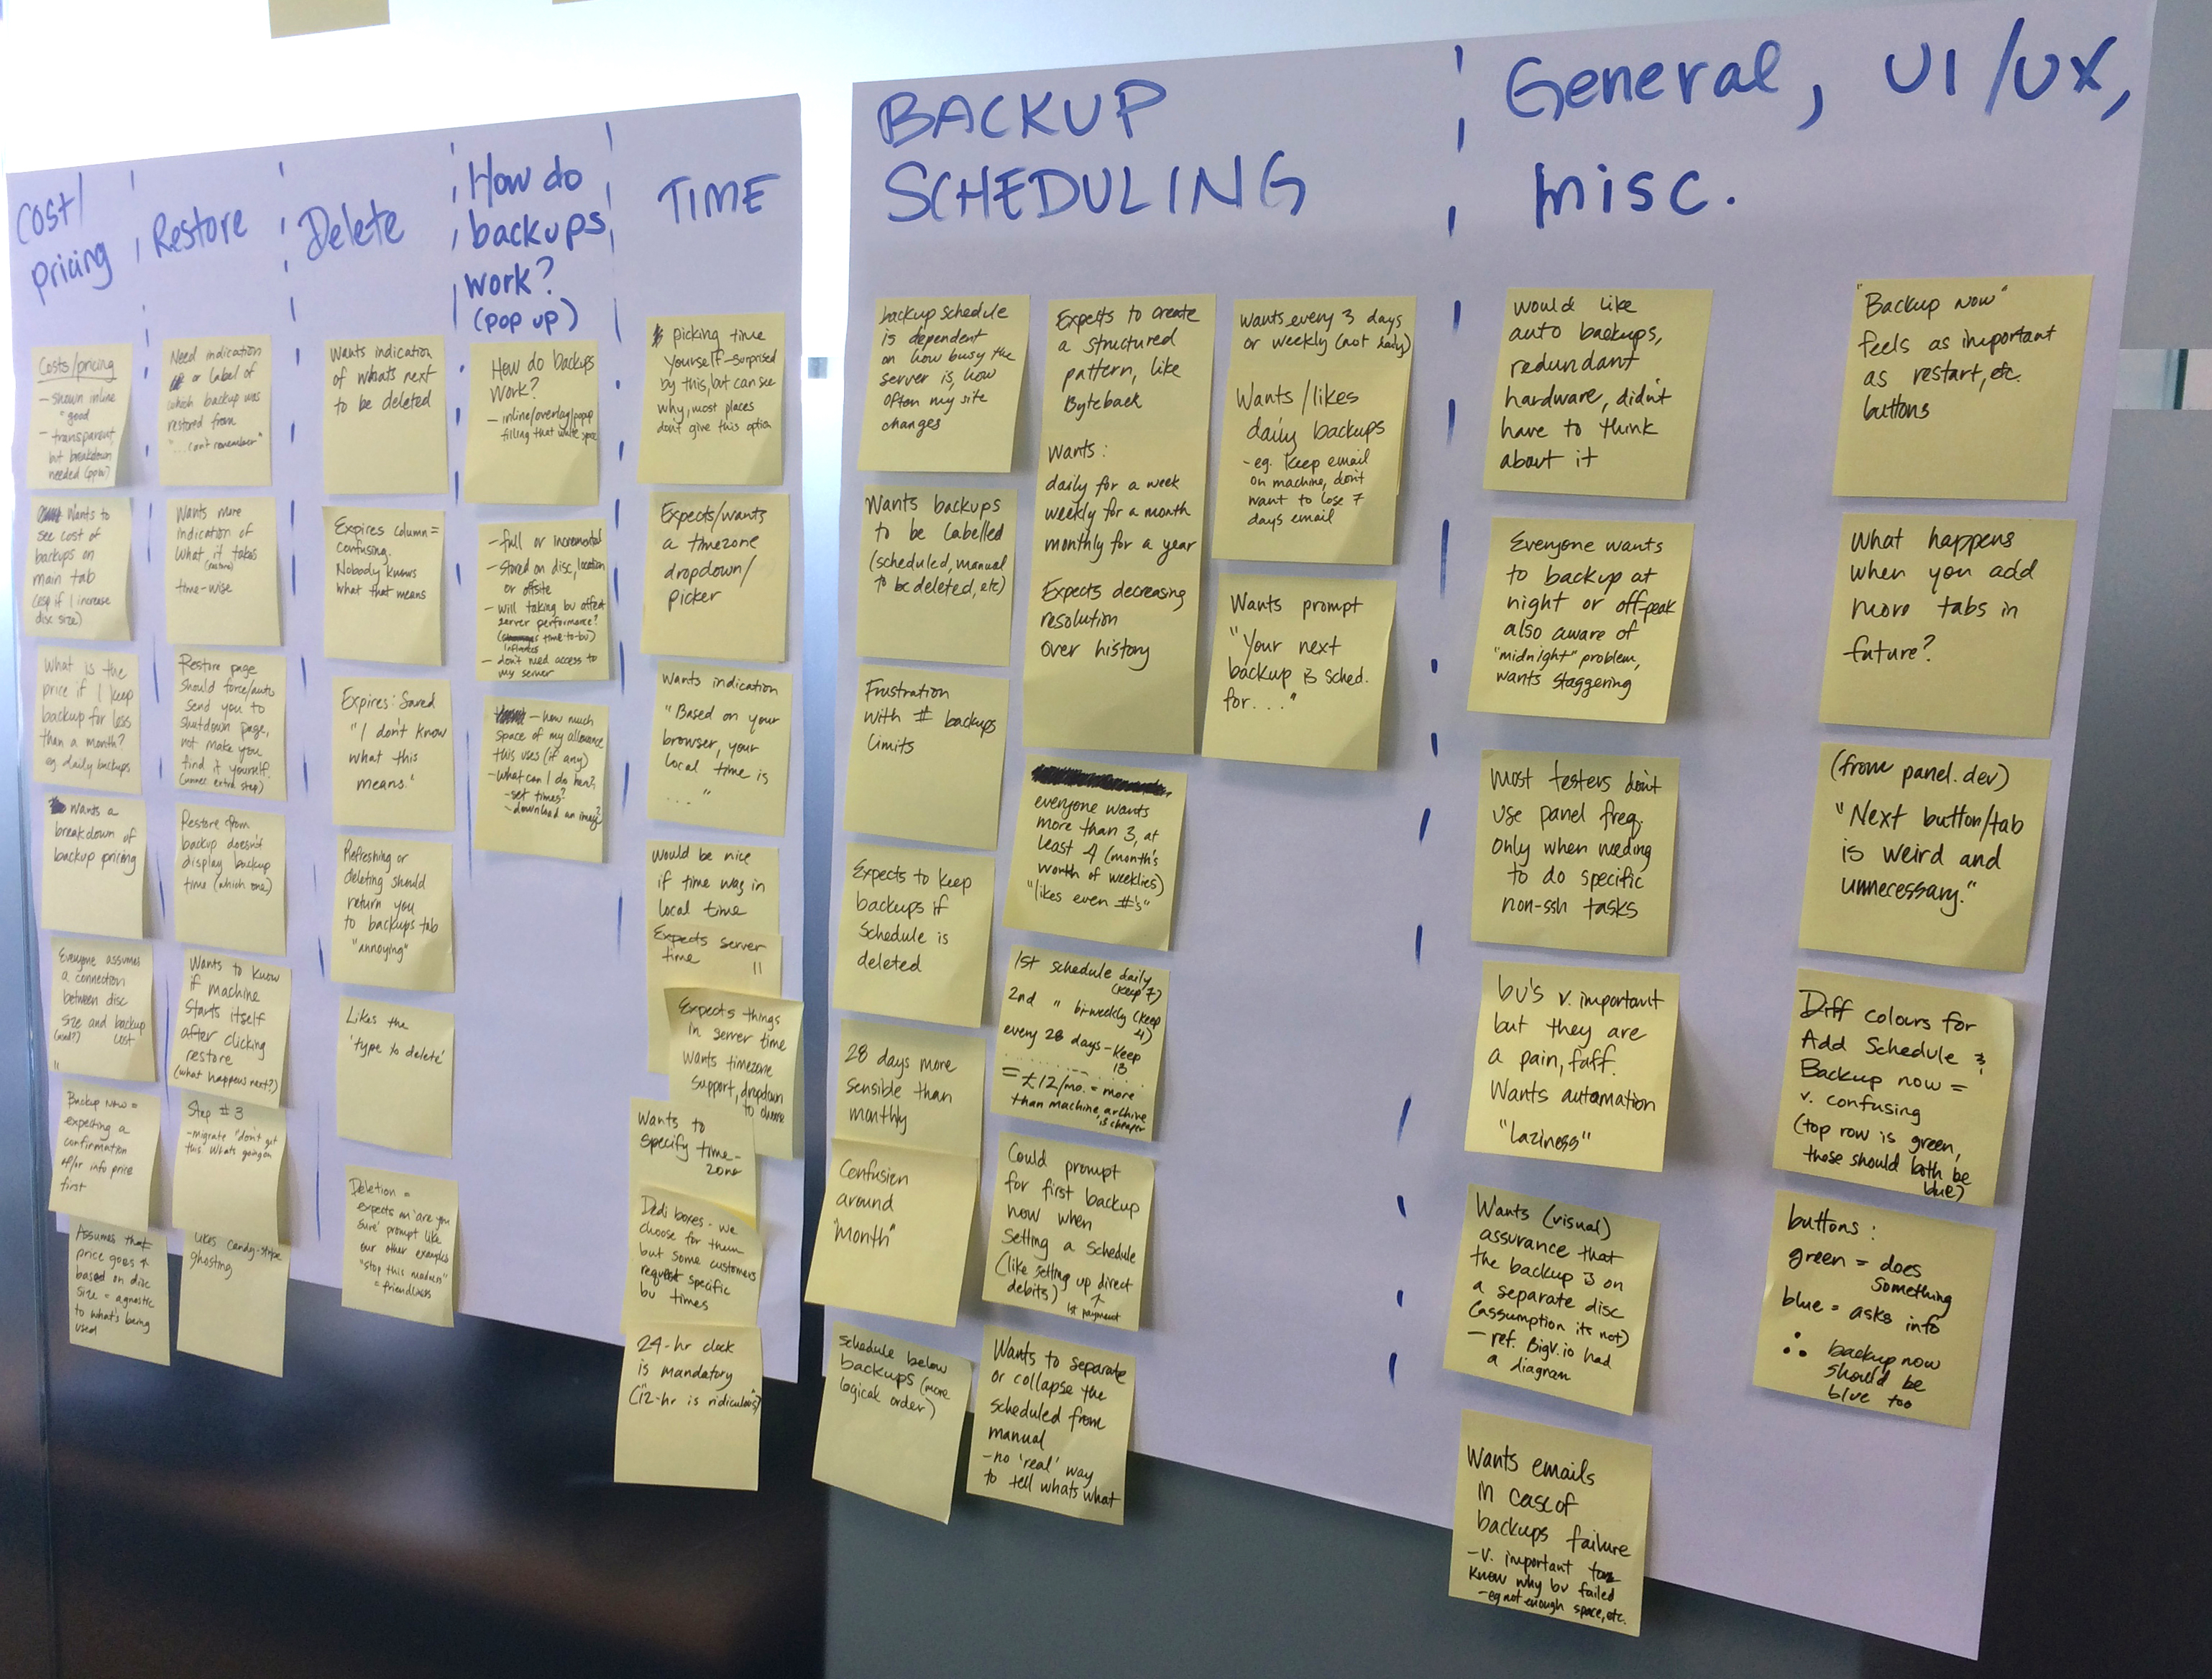 Cost/
pricing
Costs/pricing
- shown inline
= good
- transparent
but breakdown
needed (ppw)
Wants to
see cost of
backups on
main tab
(esp if I increase
disc size)
What is the
price if I keep
backup for less
than a month?
eg. daily backups
wants a
breakdown of
backup pricing
Everyone assumes
a connection
between disc
size and backup
cost
Backup Now =
expecting a
confirmation
&/or info price
first
Assumes that
price goes ↑
based on disc
size = agnostic
to what's being
used
Restore
Need indication
or label of
which backup was
restored from
"...can't remember"
Wants more
indication of
what it takes
(restore)
time-wise
Restore page
should force/auto
send you to
shutdown page,
not make you
find it yourself.
(unnec extra step)
Restore from
backup doesn't
display backup
time (which one)
Wants to know
if machine
starts itself
after clicking
restore
(what happens next?)
Step #3
- migrate "don't get
this" whats going on
Likes candy-stripe
ghosting
Delete
Wants indication
of what's next
to be deleted
Expires column =
confusing.
Nobody knows
what that means
Expires: Saved
"I don't know
what this
means."
Refreshing or
deleting should
return you
to backups tab
"annoying"
Likes the
'type to delete'
Deletion =
expects an 'are you
sure' prompt like
our other examples
"stop this madness"
= friendliness
How do
backups
work?
(pop up)
How do backups
work?
- inline/overlay/popup
filling that white space
- full or incremental
- stored on disc, location
or offsite
- will taking bu affect
server performance?
( time-to-bu)
influences
- don't need access to
my server
- how much
space of my allowance
this uses (if any)
- what can I do here?
- set times?
- download an image?
TIME
picking time
yourself - surprised
by this, but can see
why, most places
don't give this option
Expects/wants
a timezone
dropdown/
picker
Wants indication
"Based on your
browser, your
local time is
..."
Would be nice
if time was in
local time
Expects server
time
11
Expects things
in server time
Wants timezone
support, dropdown
to choose
Wants to
specify time-
zone
Dedi boxes - we
choose for them
but some customers
request specific
bu times
24-hr clock
is mandatory
("12-hr is ridiculous")
BACKUP
SCHEDULING
backup schedule
is dependent
on how busy the
server is, how
often my site
changes
Wants backups
to be labelled
(scheduled, manual
to be deleted, etc)
Frustration
with # backups
limits
Expects to keep
backups if
schedule is
deleted
28 days more
sensible than
monthly
Confusion
around
"month"
schedule below
backups (more
logical order)
Expects to create
a structured
pattern, like
Byteback
Wants:
daily for a week
weekly for a month
monthly for a year
Expects decreasing
resolution
over history
everyone wants
more than 3, at
least 4 (month's
worth of weeklies)
"likes even #'s"
1st schedule daily
(keep 7)
2nd " bi-weekly (keep
4)
every 28 days - keep
13
= £12/mo. = more
than machine, archive
is cheaper
Could prompt
for first backup
now when
setting a schedule
(like setting up direct
debits) ↑
1st payment
Wants to separate
or collapse the
scheduled from
manual
- no 'real' way
to tell whats what
Wants every 3 days
or weekly (not daily)
Wants/likes
daily backups
- eg. keep email
on machine, don't
want to lose 7
days email
Wants prompt
"Your next
backup is sched.
for..."
General, UI/UX,
misc.
would like
auto backups,
redundant
hardware, didn't
have to think
about it
Everyone wants
to backup at
night or off-peak
also aware of
"midnight" problem,
wants staggering
most testers don't
use panel freq.
only when needing
to do specific
non-ssh tasks
bu's v. important
but they are
a pain, faff.
Wants automation
"laziness"
Wants (visual)
assurance that
the backup is on
a separate disc
(assumption its not)
- ref. BigV.io had
a diagram
Wants emails
in case of
backups failure
- v. important to
know why bu failed
- eg not enough space, etc.
"Backup now"
feels as important
as restart, etc.
buttons
What happens
when you add
more tabs in
future?
(from panel.dev)
"Next button/tab
is weird and
unnecessary."
Diff colours for
Add Schedule &
Backup now =
v. confusing
(top row is green,
these should both be
blue)
buttons:
green = does
something
blue = asks info
∴ backup now
should be
blue too